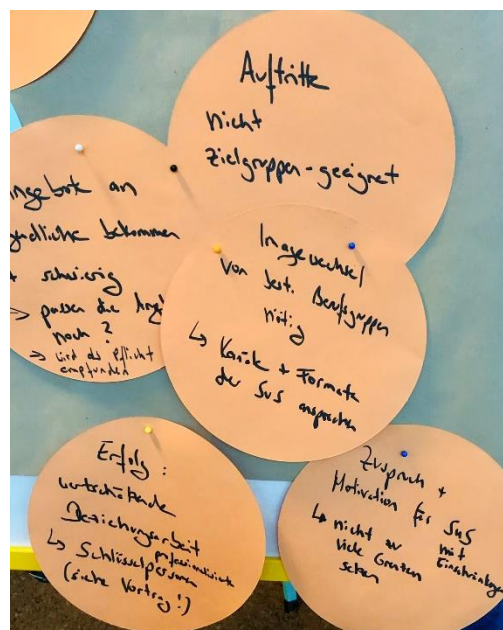 Auftritte
nicht
Zielgruppen-geeignet
ngebote an
gendliche bekommen
schwierig
→ passen die Ang
noch?
→ wird als Pflicht
empfunden
Imagewechsel
von best. Berufsgruppen
nötig
↳ Kanäle + Formate
der SuS ansprechen
Erfolg:
wertschätzende
Beziehungsarbeit
professionalisierte
↳ Schlüsselpersonen
(siehe Vortrag!)
Zuspruch +
Motivation für SuS
mit
Einschränkungen
↳ nicht zu
viele Grenzen
setzen